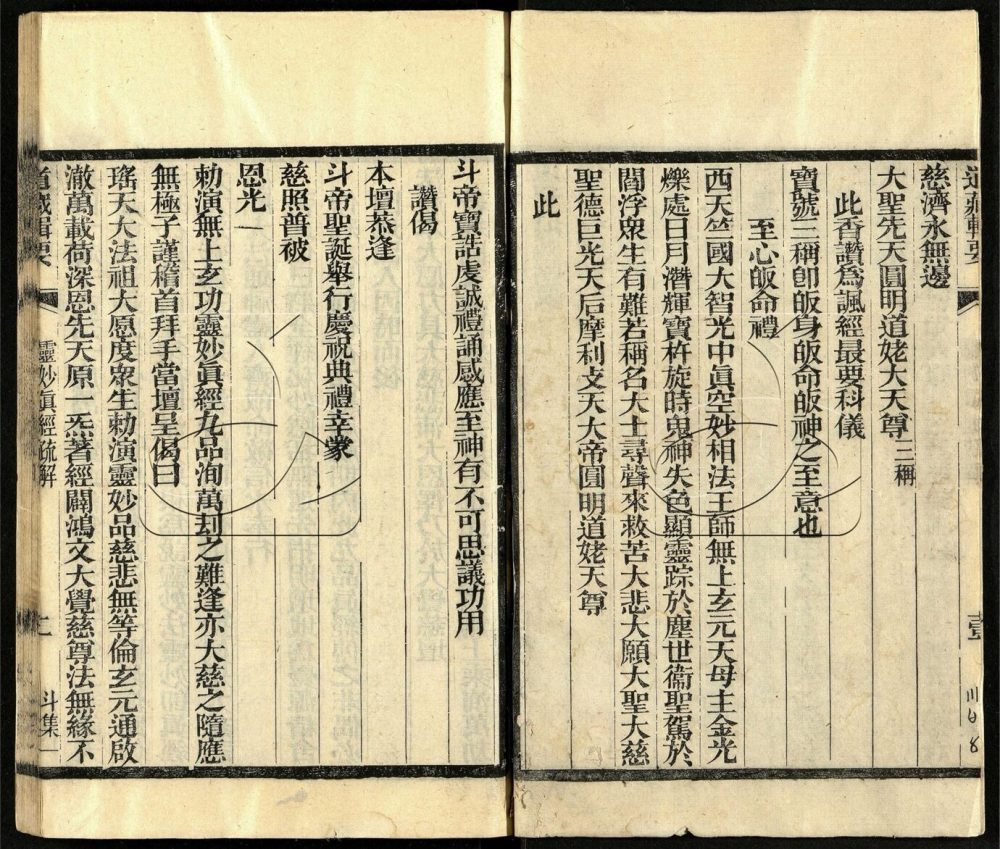 道藏輯要
壹
慈濟永無邊
大聖先天圓明道姥大天尊三稱
此香讚為諷經最要科儀
寶號三稱卽皈身皈命皈神之至意也
至心皈命禮
西天竺國大智光中眞空妙相法王師無上玄元天母主金光
爍處日月潛輝寶杵旋時鬼神失色顯靈踪於塵世衞聖駕於
閻浮眾生有難若稱名大士尋聲來救苦大悲大願大聖大慈
聖德巨光天后摩利攴天大帝圓明道姥天尊
此
斗帝寶誥虔誠禮誦感應至神有不可思議功用
讚偈
本壇恭逢
斗帝聖誕舉行慶祝典禮幸蒙
慈照普被
恩光一
勅演無上玄功靈妙眞經九品洵萬刧之難逢亦大慈之隨應
無極子謹稽首拜手當壇呈偈曰
瑤天大法祖大愿度眾生勅演靈妙品慈悲無等倫玄元通啟
澈萬載荷深恩先天原一炁著經闢鴻文大覺慈尊法無緣不
道藏輯要
靈妙眞經疏解
斗集一